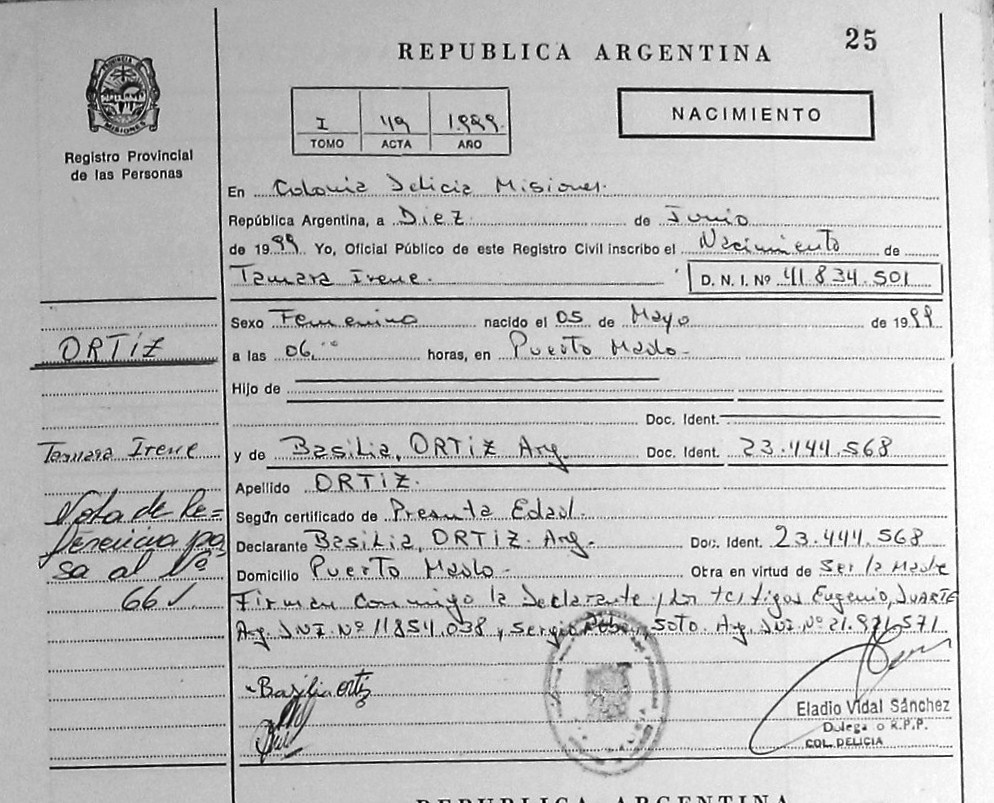 25
REPUBLICA ARGENTINA
PROVINCIA DE
MISIONES
Registro Provincial
de las Personas
I 49 1.999.
TOMO ACTA AÑO
NACIMIENTO
En Colonia Delicia Misiones.
República Argentina, a Diez de Junio
de 1999 Yo, Oficial Público de este Registro Civil inscribo el Nacimiento de
Tamara Irene. D. N. I. Nº 41.834.501
Sexo Femenino nacido el 05 de Mayo de 1999
ORTIZ
a las 06,00 horas, en Puerto Mado-
Hijo de
Doc. Ident.
Tamara Irene
y de Basilia, ORTIZ Arg. Doc. Ident. 23.444.568
Apellido ORTIZ.
Nota de Re=
Según certificado de Presunta Edad.
ferencia pa
Declarante Basilia, ORTIZ. Arg. Doc. Ident. 23.444.568
sa al Nº
Domicilio Puerto Mado- Otra en virtud de Ser la Madre
66
Firman conmigo la Declarante y los testigos Eugenio, DUARTE
Arg. DNI. Nº 11854.038 y Sergio SOTO. Arg. DNI. Nº 21.971.571
Basilia ortiz
Eladio Vidal Sánchez
R.P.P.
COL. DELICIA
REPUBLICA ARGENTINA